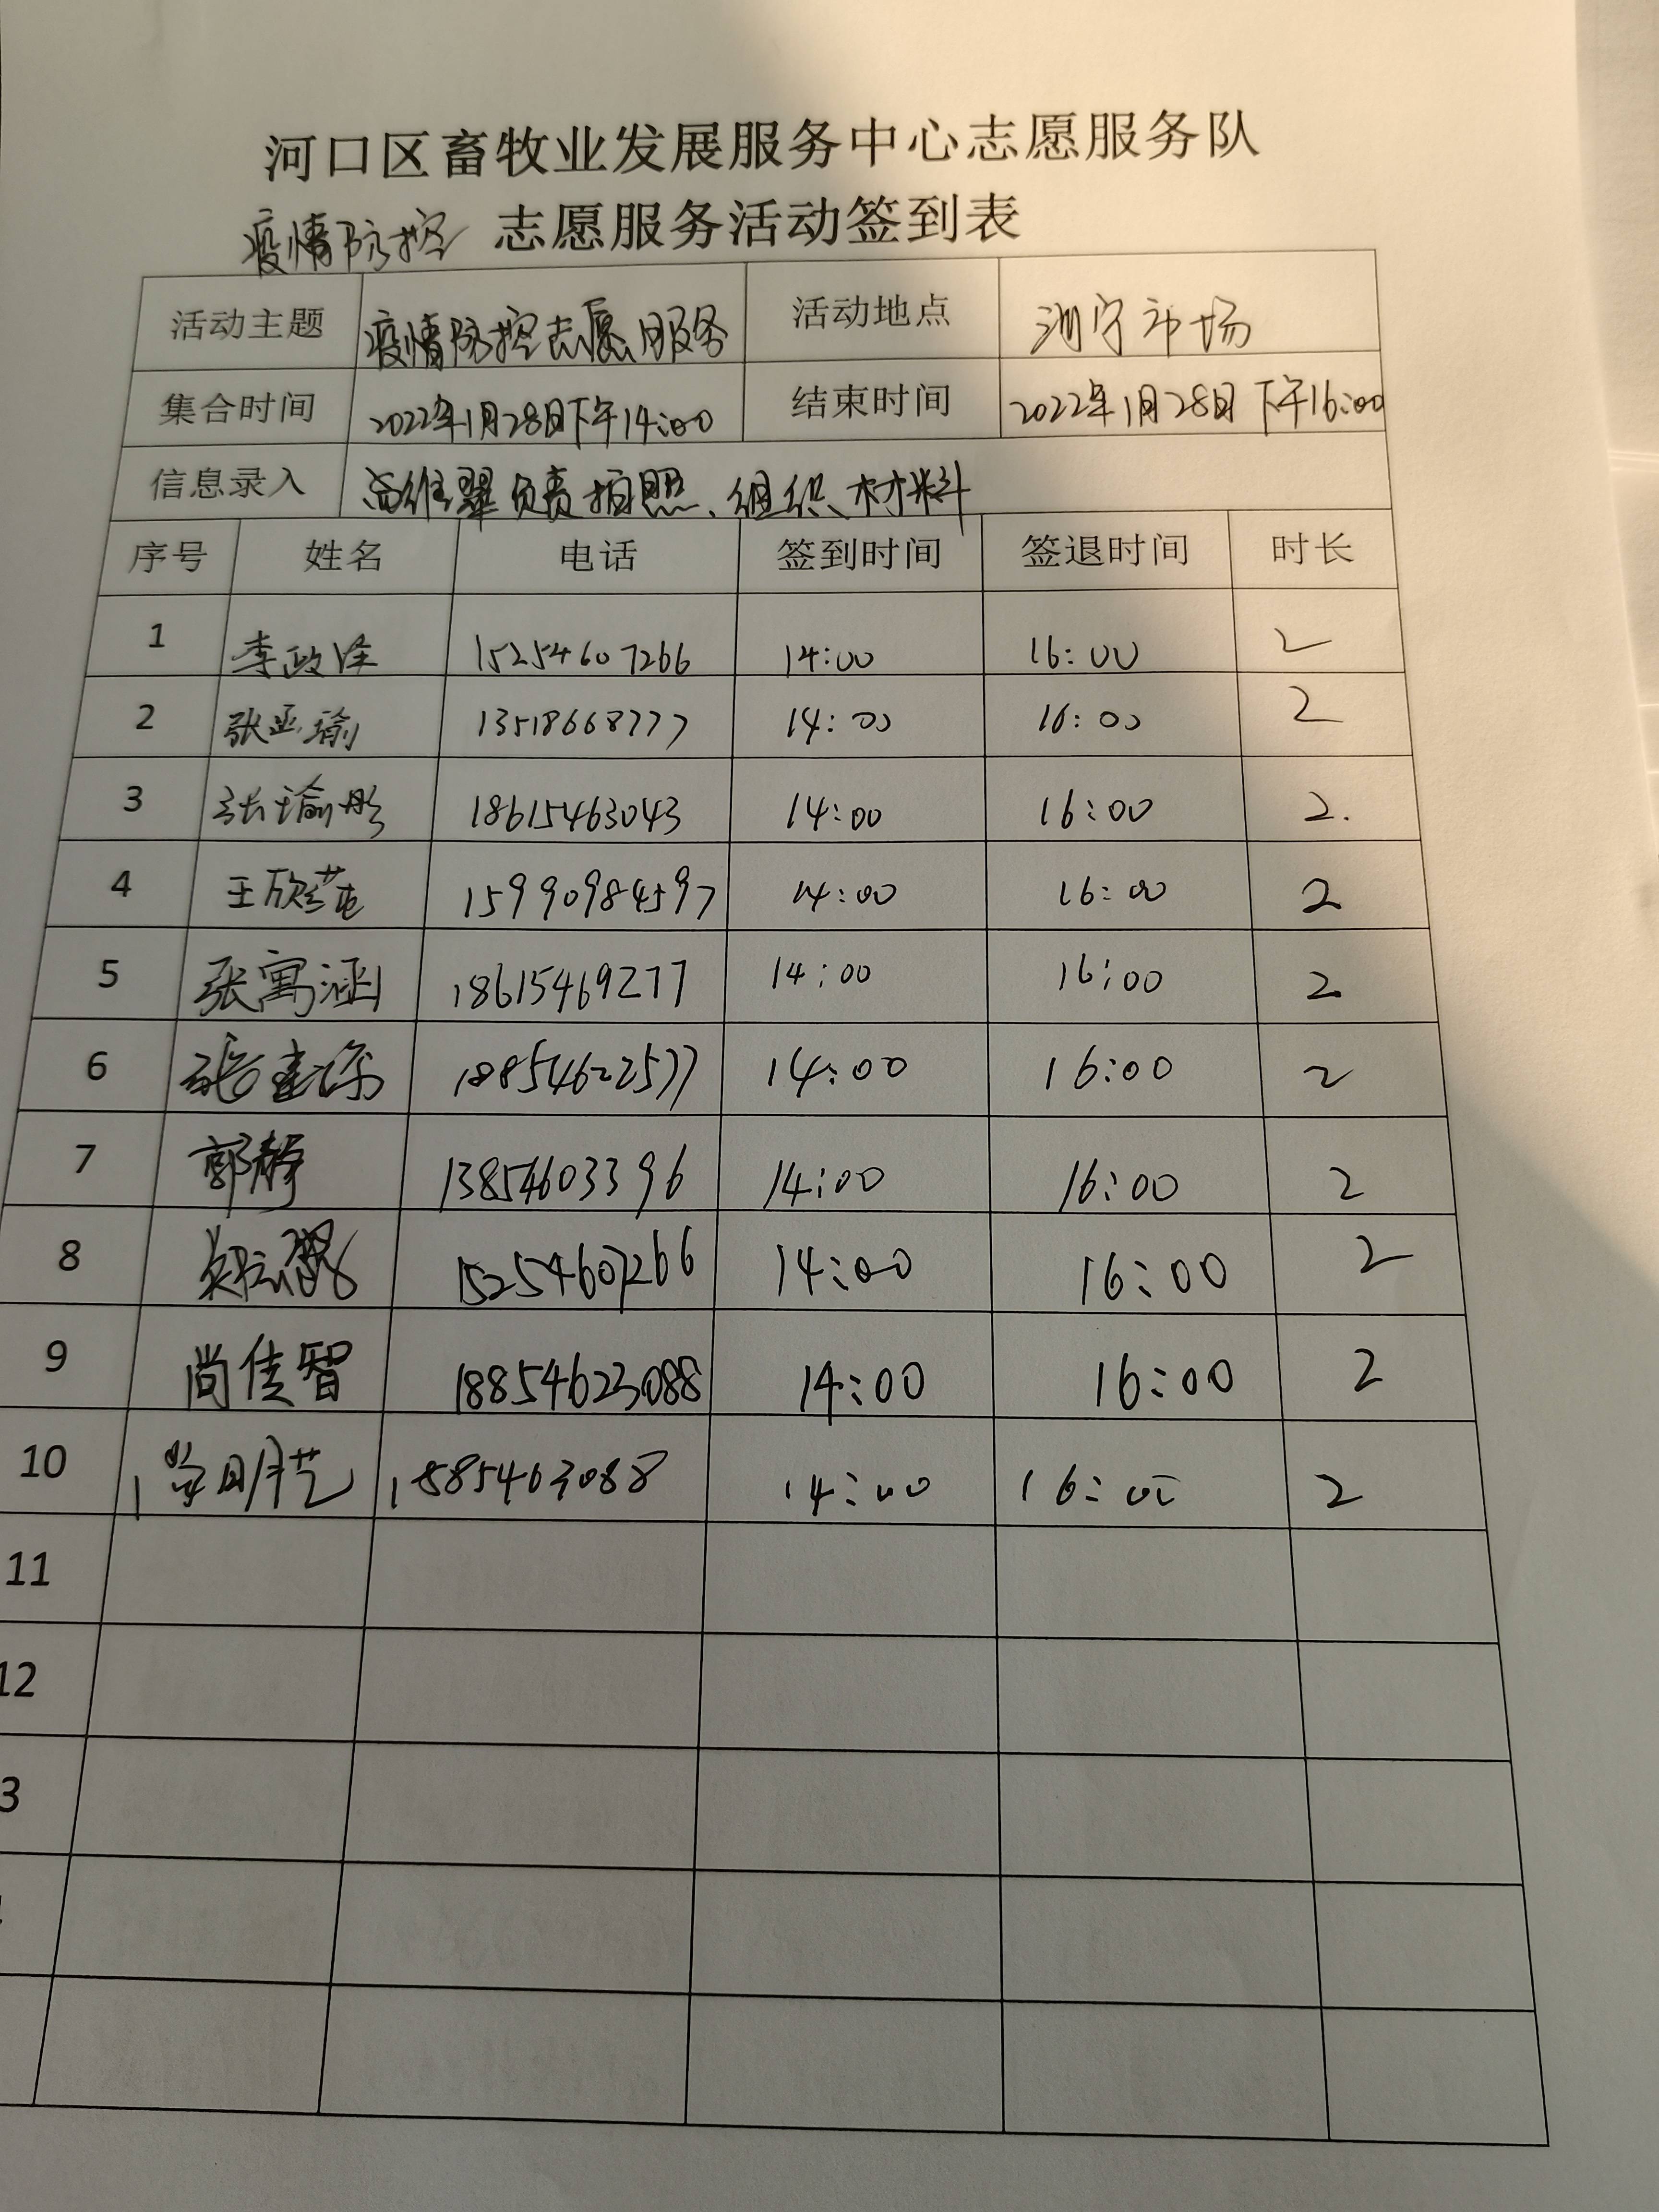 河口区畜牧业发展服务中心志愿服务队
疫情防控 志愿服务活动签到表
活动主题 疫情防控志愿服务 活动地点 市场
集合时间 2022年1月28日下午14:00 结束时间 2022年1月28日下午16:00
信息录入 负责拍照、组织材料
序号 姓名 电话 签到时间 签退时间 时长
1 李政泽 15254607266 14:00 16:00 2
2 张亚瑜 13518668777 14:00 16:00 2
3 张瑜彤 18615463043 14:00 16:00 2.
4 15990984597 14:00 16:00 2
5 张寓涵 18615469277 14:00 16:00 2
6 18854622577 14:00 16:00 2
7 郭静 13854603396 14:00 16:00 2
8 15254607266 14:00 16:00 2
9 尚佳智 18854623088 14:00 16:00 2
10 14:00 16:00 2
11
12
3